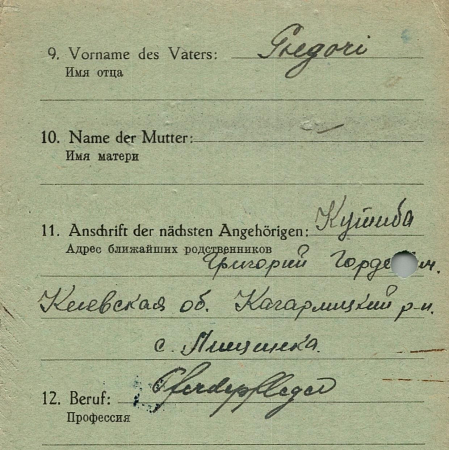 9. Vorname des Vaters: Gregori
Имя отца
10. Name der Mutter: —
Имя матери
11. Anschrift der nächsten Angehörigen: Кушиба
Адрес ближайших родственников
Григорий
Киевская об. Кагарлицкий р-н.
с.
12. Beruf: Pferdepfleger
Профессия